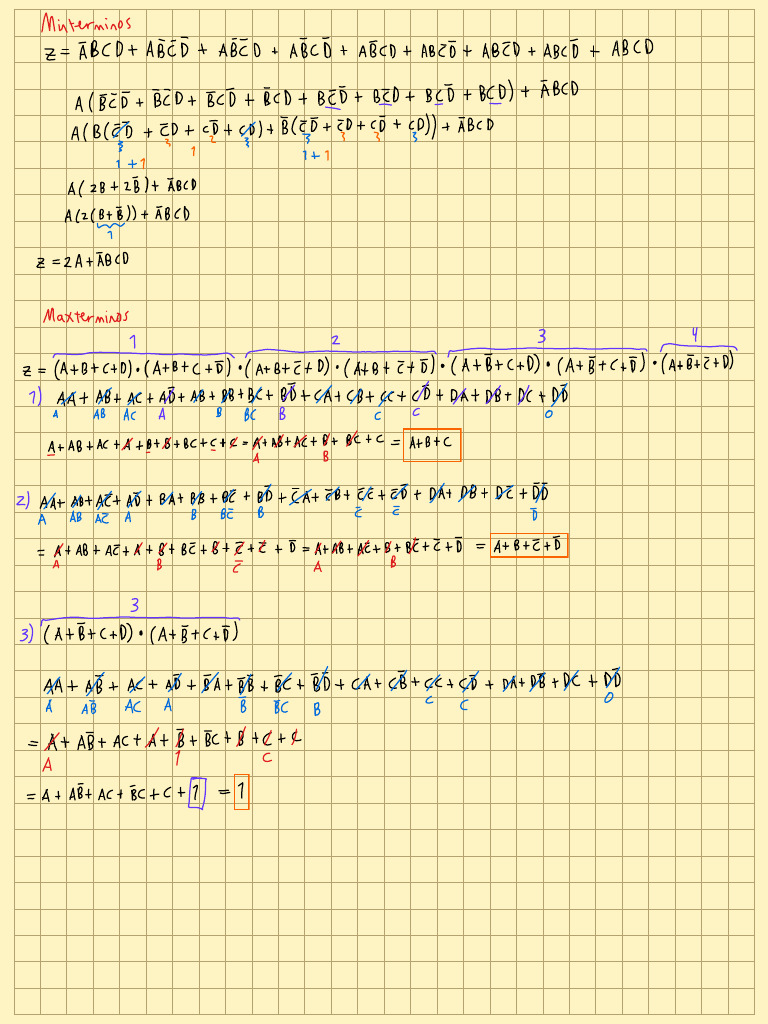 Minterminos
z = A̅BCD + AB̅C̅D̅ + AB̅C̅D + AB̅CD̅ + AB̅CD + ABC̅D̅ + ABC̅D + ABCD̅ + ABCD
A(B̅C̅D̅ + B̅C̅D + B̅CD̅ + B̅CD + BC̅D̅ + BC̅D + BCD̅ + BCD) + A̅BCD
A(B(C̅D̅ + C̅D + CD̅ + CD) + B̅(C̅D̅ + C̅D + CD̅ + CD)) + A̅BCD
1 + 1 1 1 + 1
A(2B + 2B̅) + A̅BCD
A(2(B + B̅)) + A̅BCD
1
z = 2A + A̅BCD
Maxterminos
1 2 3 4
z = (A+B+C+D)·(A+B+C+D̅)·(A+B+C̅+D)·(A+B+C̅+D̅)·(A+B̅+C+D)·(A+B̅+C+D̅)·(A+B̅+C̅+D)
1) AA + AB + AC + AD̅ + AB + BB + BC + BD̅ + CA + CB + CC + CD̅ + DA + DB + DC + DD̅
A AB AC A B BC B C C 0
A + AB + AC + A + B + B + BC + C + C = A + AB + AC + B + BC + C = A+B+C
A B
2) AA + AB + AC̅ + AD̅ + BA + BB + BC̅ + BD̅ + C̅A + C̅B + C̅C̅ + C̅D̅ + DA + DB + DC̅ + D̅D̅
A AB AC̅ A B BC̅ B C̅ C̅ D̅
= A + AB + AC̅ + A + B + BC̅ + B + C̅ + C̅ + D̅ = A + AB + AC̅ + B + BC̅ + C̅ + D̅ = A+B+C̅+D̅
A B C̅ A B
3
3) (A+B̅+C+D)·(A+B̅+C+D̅)
AA + AB̅ + AC + AD̅ + B̅A + B̅B̅ + B̅C + B̅D̅ + CA + CB̅ + CC + CD̅ + DA + DB̅ + DC + DD̅
A AB̅ AC A B̅ B̅C B C C 0
= A + AB̅ + AC + A + B̅ + B̅C + B + C + C
A 1 C
= A + AB̅ + AC + B̅C + C + 1 = 1